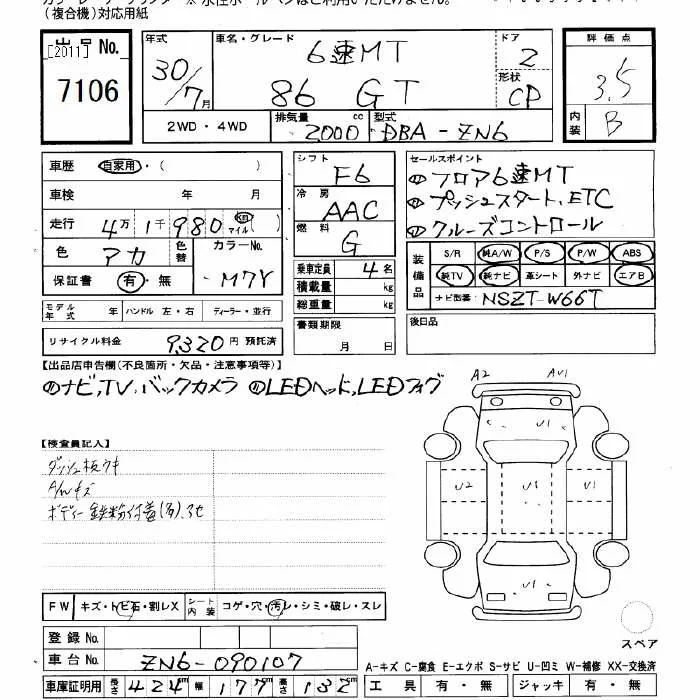 (複合機)対応用紙
出品No.
[2011]
7106
年式
30/7月
車名・グレード
6速MT
86 GT
ドア
2
形状
CP
評価点
3.5
内装
B
2WD・4WD
排気量
2000cc
型式
DBA-ZN6
車歴 自家用・( )
車検 年 月
走行 4万1千980 km マイル
色 アカ 色替 カラーNo. M7Y
保証書 有・無
シフト
F6
冷房
AAC
燃料
G
乗車定員 4名
積載量 kg
総重量 kg
セールスポイント
①フロア6速MT
②プッシュスタート、ETC
③クルーズコントロール
装備品
S/R 純A/W P/S P/W ABS
純TV 純ナビ 革シート 外ナビ エアB
ナビ型番: NSZT-W66T
モデル年式 年 ハンドル 左・右 ディーラー・並行
リサイクル料金 9,320円 預託済
書類期限
月 日
後日品
【出品店申告欄(不良箇所・欠品・注意事項等)】
④ナビ,TV,バックカメラ ⑤LEDヘッド,LEDフォグ
【検査員記入】
ダッシュ板ウキ
A/Wキズ
ボディー鉄粉付着(多)、他
A2 AV1
U2 U1 U1
U1
FW キズ・トビ石・割レX シート内装 コゲ・穴・汚レ・シミ・破レ・スレ
登録No.
車台No. ZN6-090107
車庫証明用 長さ 424cm 幅 177cm 高さ 132cm
スペア
A-キズ C-腐食 E-エクボ S-サビ U-凹ミ W-補修 XX-交換済
工具 有・無 ジャッキ 有・無